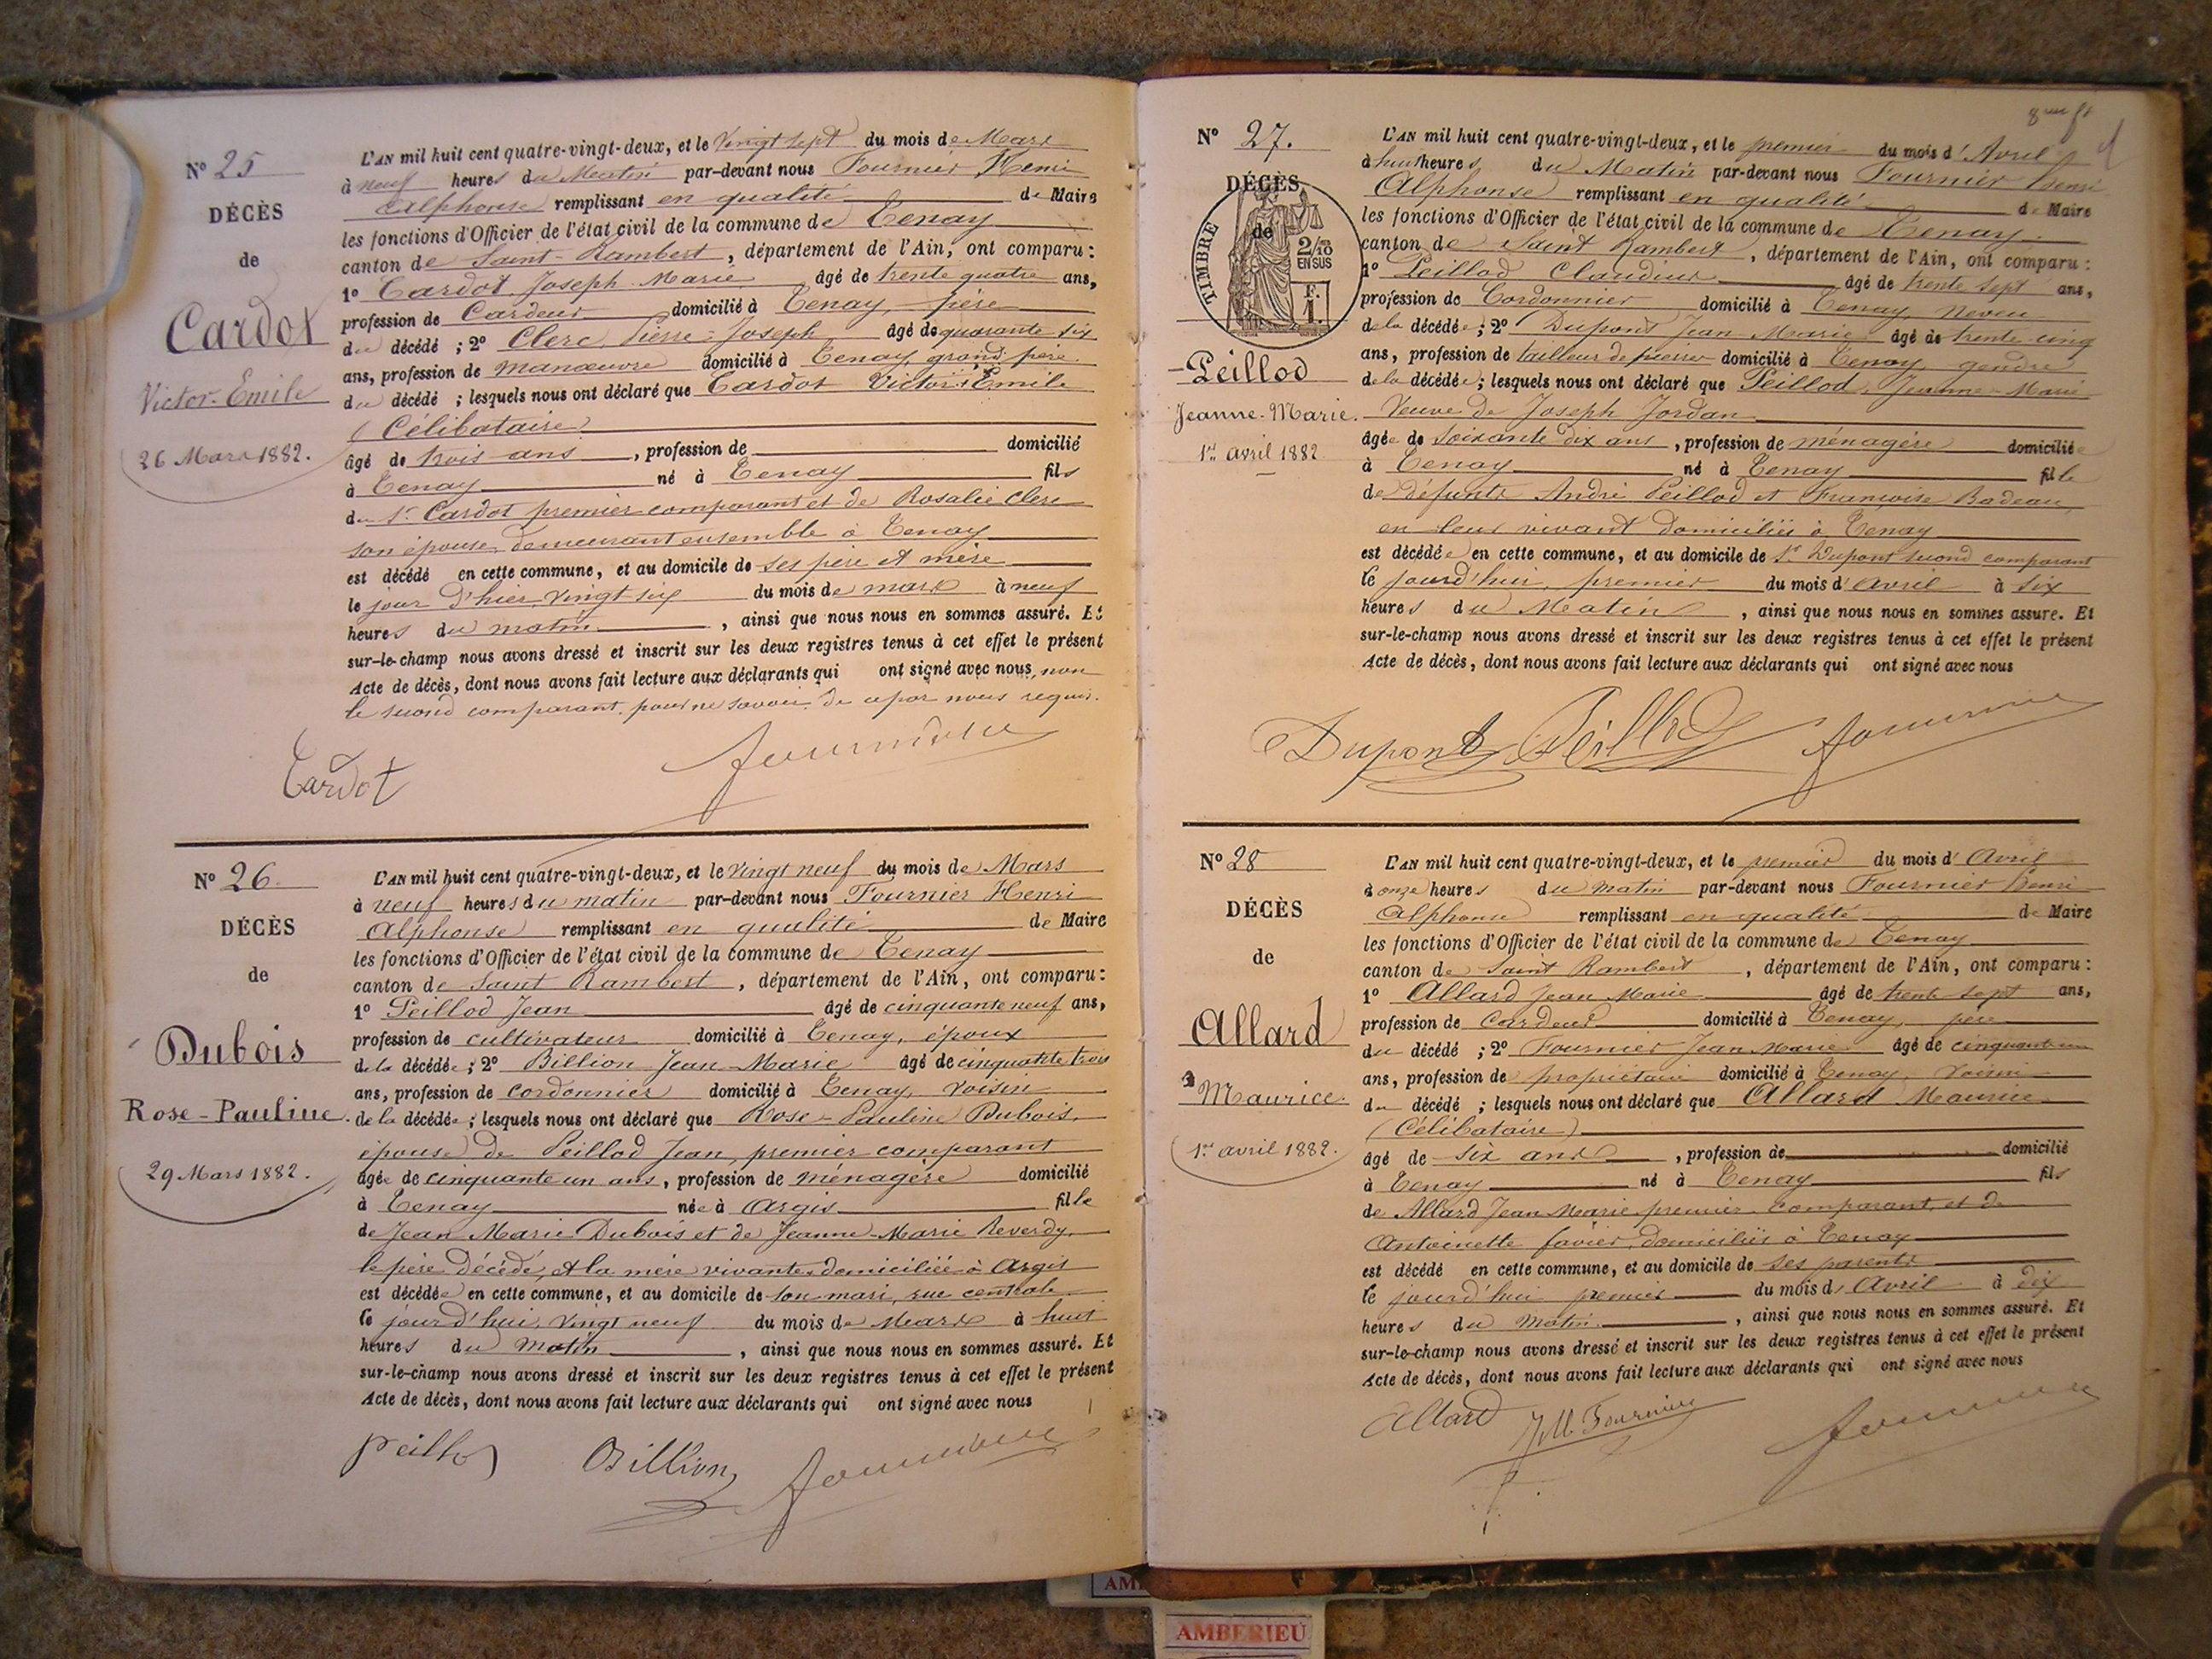 Nº 25
DÉCÈS
de
Cardot
Victor-Emile
26 Mars 1882.
L'AN mil huit cent quatre-vingt-deux, et le Vingt sept du mois de Mars
à neuf heures du Matin par-devant nous Fournier Henri
Alphonse remplissant en qualité de Maire
les fonctions d'Officier de l'état civil de la commune de Tenay
canton de Saint-Rambert, département de l'Ain, ont comparu :
1º Cardot Joseph Marie âgé de trente quatre ans,
profession de Cardeur domicilié à Tenay, père
du décédé ; 2º Clerc Pierre-Joseph âgé de quarante six
ans, profession de manœuvre domicilié à Tenay, grand père
du décédé ; lesquels nous ont déclaré que Cardot Victor Emile
(Célibataire)
âgé de trois ans, profession de domicilié
à Tenay né à Tenay fils
du Sr Cardot premier comparant et de Rosalie Clerc
son épouse, demeurant ensemble à Tenay
est décédé en cette commune, et au domicile de ses père et mère
le jour d'hier, vingt six du mois de mars à neuf
heures du matin, ainsi que nous nous en sommes assuré. Et
sur-le-champ nous avons dressé et inscrit sur les deux registres tenus à cet effet le présent
Acte de décès, dont nous avons fait lecture aux déclarants qui ont signé avec nous, non
le second comparant pour ne savoir de ce par nous requis.
Cardot Fournier
Nº 26
DÉCÈS
de
Dubois
Rose-Pauline.
29 Mars 1882.
L'AN mil huit cent quatre-vingt-deux, et le Vingt neuf du mois de Mars
à neuf heures du matin par-devant nous Fournier Henri
Alphonse remplissant en qualité de Maire
les fonctions d'Officier de l'état civil de la commune de Tenay
canton de Saint Rambert, département de l'Ain, ont comparu :
1º Peillod Jean âgé de cinquante neuf ans,
profession de cultivateur domicilié à Tenay, époux
de la décédée ; 2º Billion Jean-Marie âgé de cinquante trois
ans, profession de cordonnier domicilié à Tenay, voisin
de la décédée ; lesquels nous ont déclaré que Rose-Pauline Dubois,
épouse de Peillod Jean, premier comparant
âgée de cinquante un ans, profession de ménagère domicilié
à Tenay née à Argis fille
de Jean Marie Dubois et de Jeanne-Marie Reverdy,
le père décédé, et la mère vivante domiciliée à Argis
est décédée en cette commune, et au domicile de son mari, rue centrale
le jourd'hui, vingt neuf du mois de Mars à huit
heures du Matin, ainsi que nous nous en sommes assuré. Et
sur-le-champ nous avons dressé et inscrit sur les deux registres tenus à cet effet le présent
Acte de décès, dont nous avons fait lecture aux déclarants qui ont signé avec nous
Peillod Billion Fournier
Nº 27.
DÉCÈS
de
TIMBRE
2/10
EN SUS
F.
1.
Peillod
Jeanne-Marie.
1er avril 1882
L'AN mil huit cent quatre-vingt-deux, et le premier du mois d'Avril
à huit heures du Matin par-devant nous Fournier Henri
Alphonse remplissant en qualité de Maire
les fonctions d'Officier de l'état civil de la commune de Tenay
canton de Saint Rambert, département de l'Ain, ont comparu :
1º Peillod Claudius âgé de trente sept ans,
profession de Cordonnier domicilié à Tenay, neveu
de la décédée ; 2º Dupont Jean Marie âgé de trente-cinq
ans, profession de tailleur de pierre domicilié à Tenay, gendre
de la décédée ; lesquels nous ont déclaré que Peillod, Jeanne-Marie
Veuve de Joseph Jordan
âgée de soixante dix ans, profession de ménagère domiciliée
à Tenay né à Tenay fille
de défunts André Peillod et Françoise Badeau,
en leur vivant domiciliés à Tenay
est décédée en cette commune, et au domicile de Sr Dupont second comparant
le jourd'hui, premier du mois d'avril à six
heures du Matin, ainsi que nous nous en sommes assuré. Et
sur-le-champ nous avons dressé et inscrit sur les deux registres tenus à cet effet le présent
Acte de décès, dont nous avons fait lecture aux déclarants qui ont signé avec nous
Dupont Peillod Fournier
Nº 28
DÉCÈS
de
Allard
Maurice.
1er avril 1882.
L'AN mil huit cent quatre-vingt-deux, et le premier du mois d'Avril
à onze heures du matin par-devant nous Fournier Henri
Alphonse remplissant en qualité de Maire
les fonctions d'Officier de l'état civil de la commune de Tenay
canton de Saint Rambert, département de l'Ain, ont comparu :
1º Allard Jean Marie âgé de trente sept ans,
profession de Cardeur domicilié à Tenay, père
du décédé ; 2º Fournier Jean Marie âgé de cinquante un
ans, profession de propriétaire domicilié à Tenay, Voisin
du décédé ; lesquels nous ont déclaré que Allard Maurice
(Célibataire)
âgé de six ans, profession de domicilié
à Tenay né à Tenay fils
de Allard Jean Marie premier comparant, et de
Antoinette Favier, domiciliés à Tenay
est décédé en cette commune, et au domicile de ses parents
le jourd'hui premier du mois d'Avril à dix
heures du Matin, ainsi que nous nous en sommes assuré. Et
sur-le-champ nous avons dressé et inscrit sur les deux registres tenus à cet effet le présent
Acte de décès, dont nous avons fait lecture aux déclarants qui ont signé avec nous
Allard JM Fournier Fournier
AMBERIEU